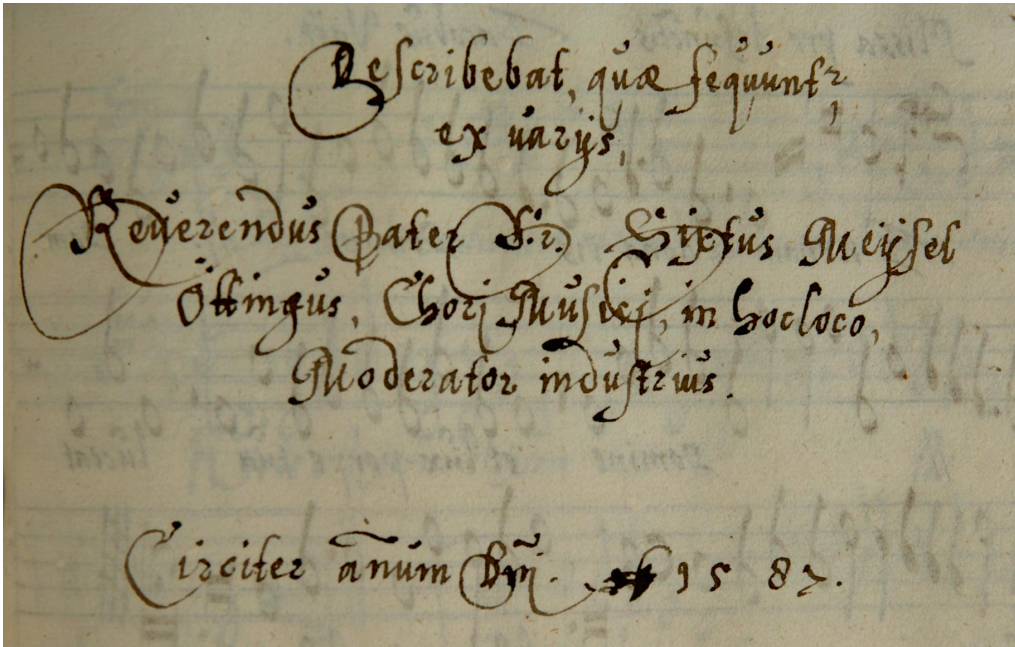 Describebat, quæ sequunt͛
ex varijs,
Reuerendus Pater Fr. Sixtus Meijsel
Öttingus, Chori Musici, in hocloco,
Moderator industrius.
Circiter añum Dñi. 1587.